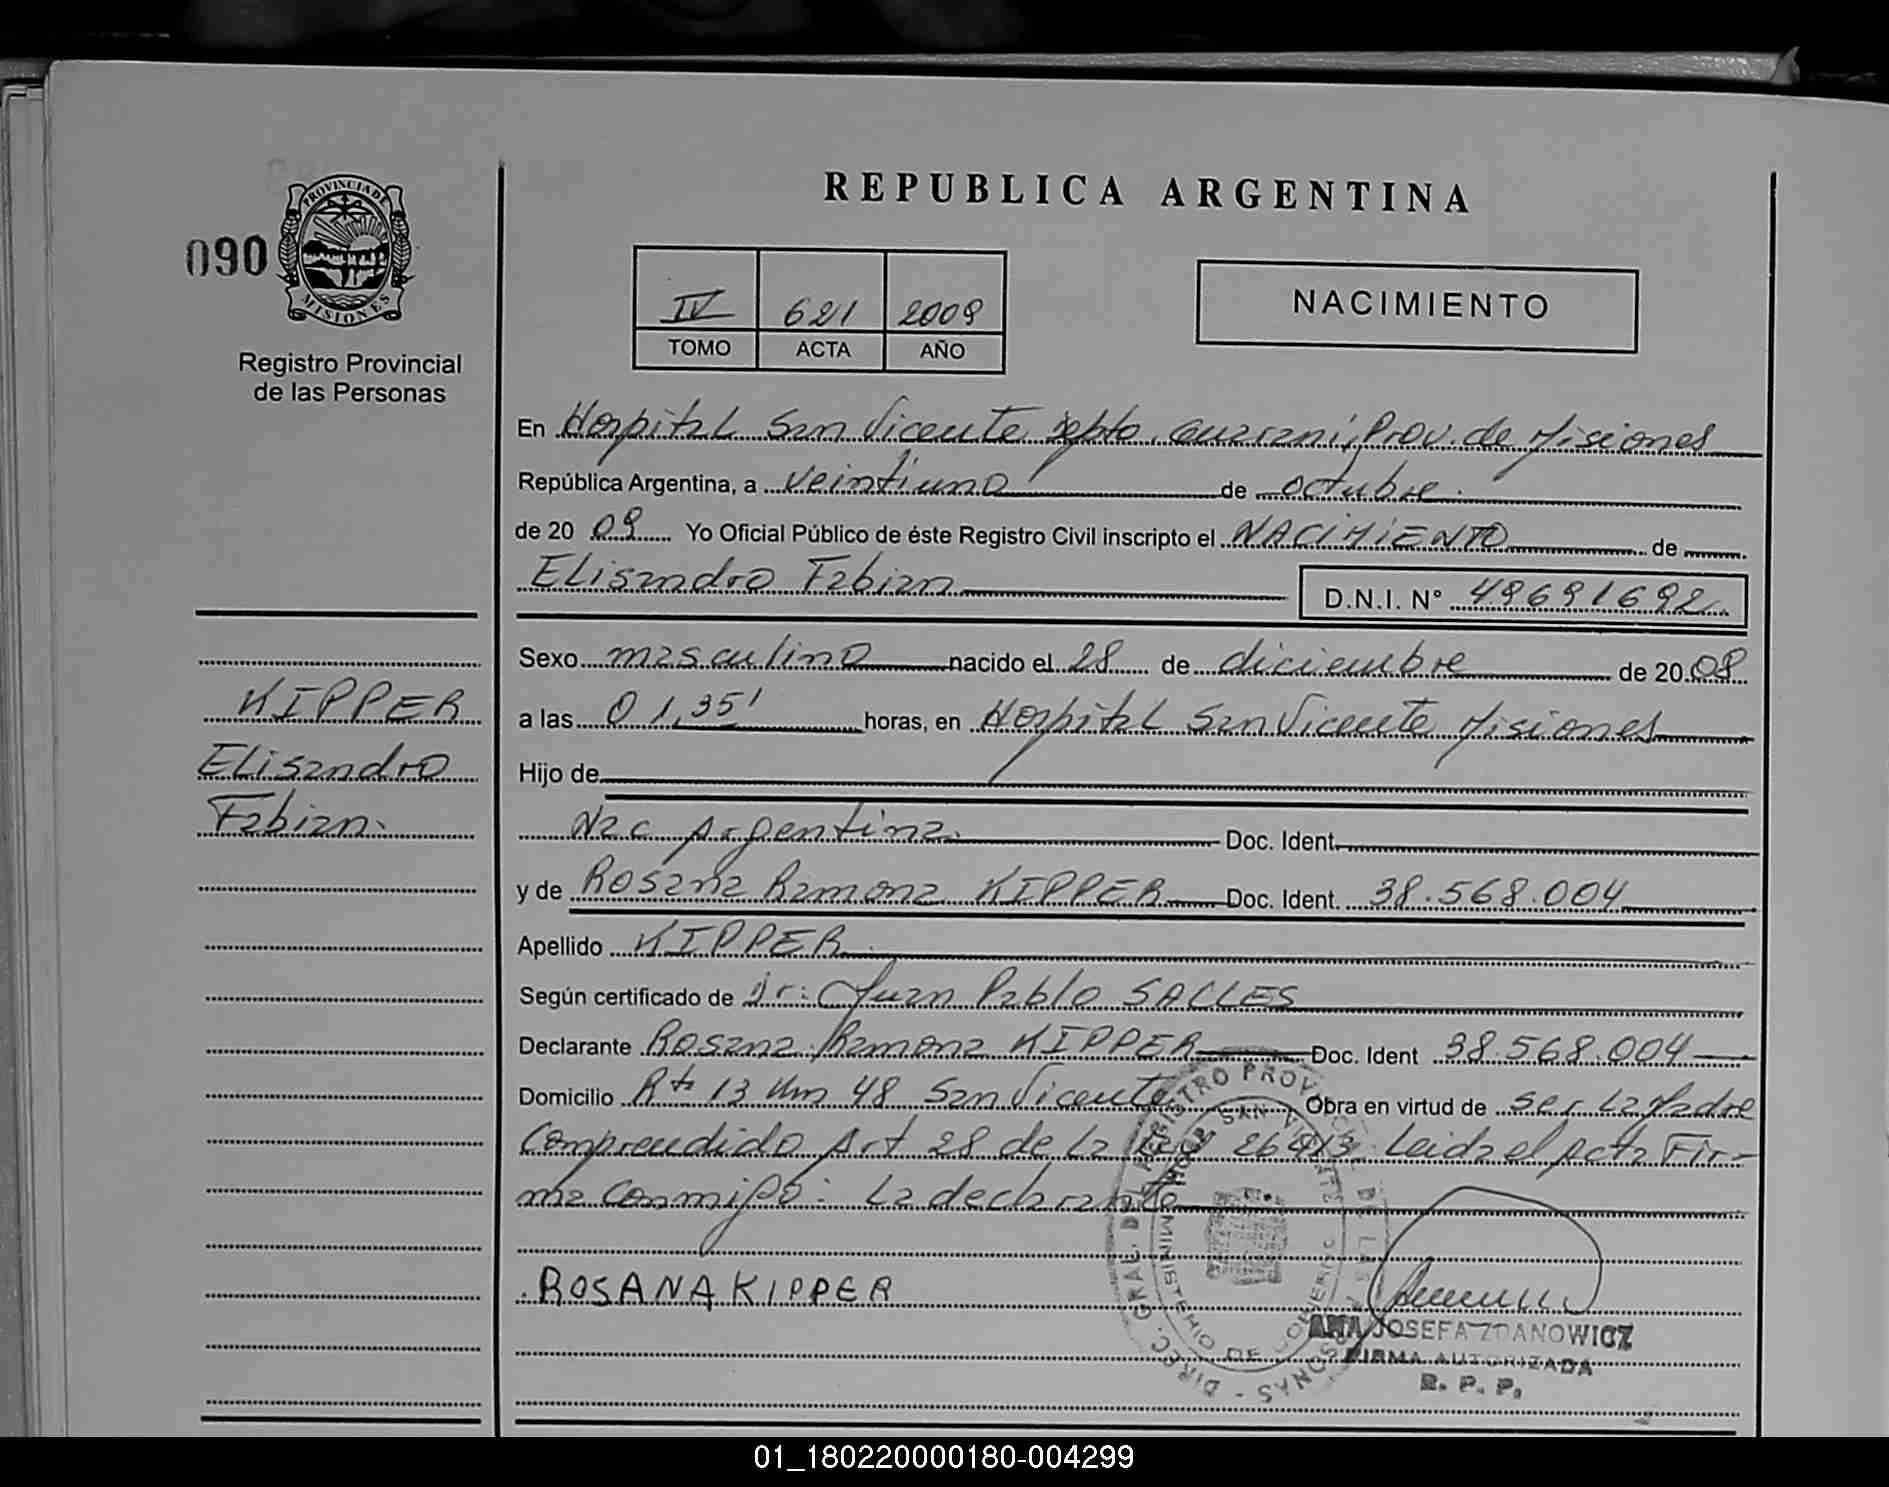 REPUBLICA ARGENTINA
090
PROVINCIA DE
MISIONES
Registro Provincial
de las Personas
IV 621 2009
TOMO ACTA AÑO
NACIMIENTO
En Hospital San Vicente Depto. Guarani, Prov. de Misiones
República Argentina, a veintiuno de octubre.
de 20 09 Yo Oficial Público de éste Registro Civil inscripto el NACIMIENTO de
Elisandro Fabian D.N.I. N° 49691692
Sexo masculino nacido el 28 de diciembre de 20 08
a las 01,35' horas, en Hospital San Vicente Misiones
Hijo de
Nac Argentina. Doc. Ident.
y de Rosana Ramona KIPPER Doc. Ident. 38.568.004
Apellido KIPPER
Según certificado de Dr: Juan Pablo SALLES
Declarante Rosana Ramona KIPPER Doc. Ident 38.568.004
Domicilio Rta 13 Km 48 San Vicente Obra en virtud de ser La Madre
Comprendido Art 28 de La Ley 26413 Leida el Acta Fir-
ma Conmigo: La declarante
ROSANA KIPPER
KIPPER
Elisandro
Fabian.
DIREC. GRAL. DEL REGISTRO PROVINCIAL DE LAS PERSONAS -
MINISTERIO DE GOBIERNO
SAN VICENTE
ANA JOSEFA ZDANOWICZ
FIRMA AUTORIZADA
R. P. P.
01_180220000180-004299